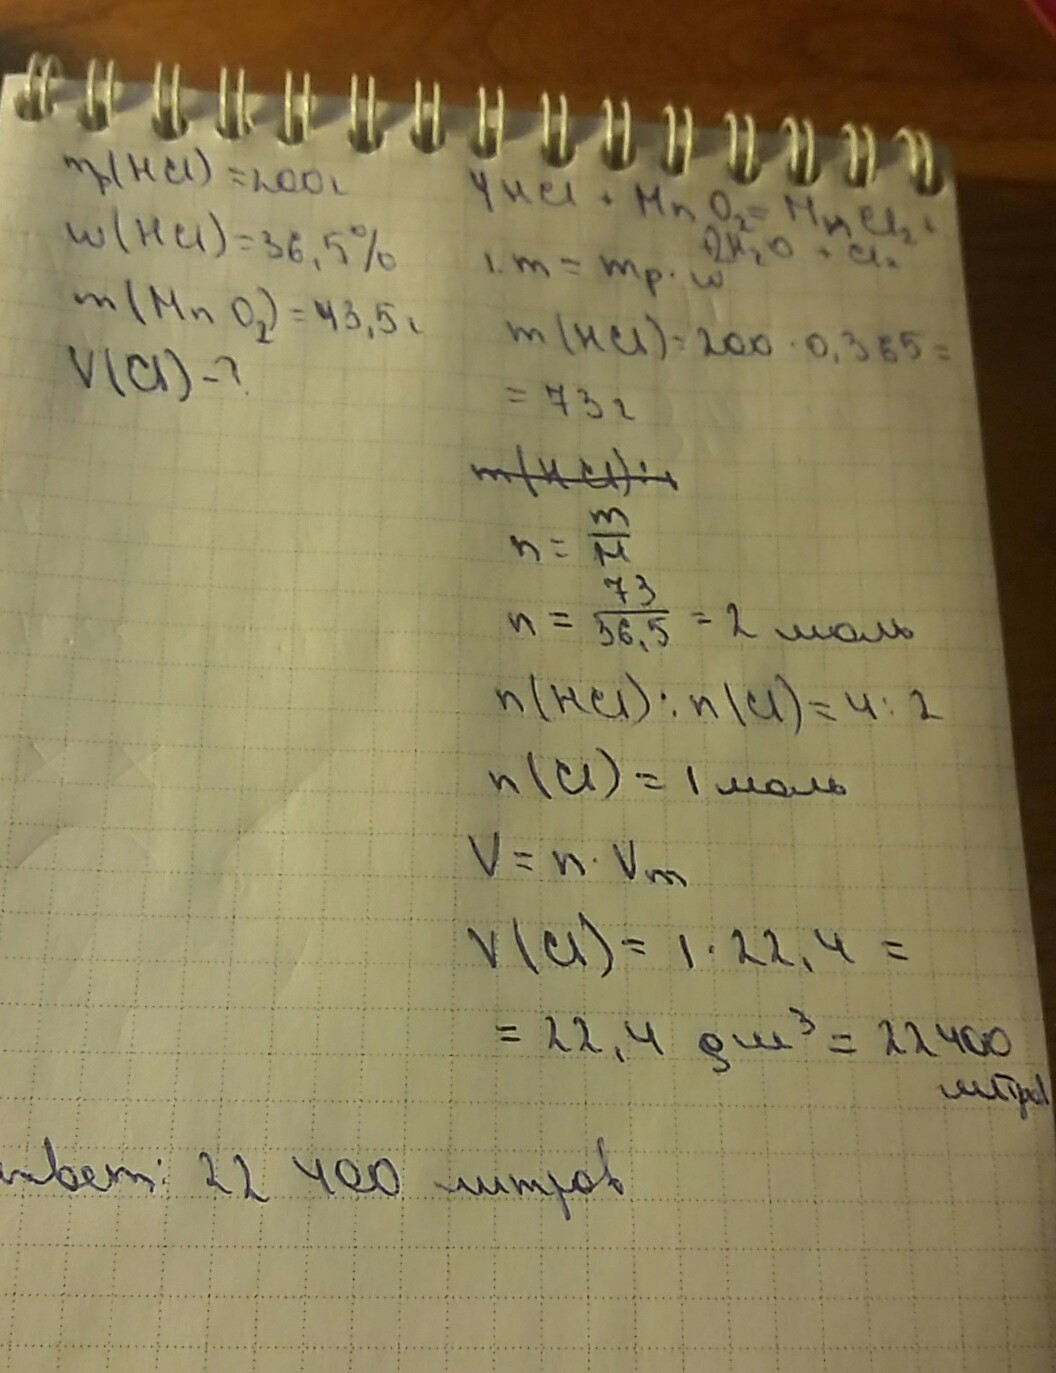 mр(HCl) = 200г
w(HCl) = 36,5%
m(MnO₂) = 43,5г
V(Cl) - ?
4HCl + MnO₂ = MnCl₂ +
2H₂O + Cl₂
1. m = mр · w
m(HCl) = 200 · 0,365 =
= 73г
m(HCl) :
n = m/M
n = 73/36,5 = 2 моль
n(HCl) : n(Cl) = 4 : 2
n(Cl) = 1 моль
V = n · Vm
V(Cl) = 1 · 22,4 =
= 22,4 дм³ = 22400
литров
Ответ: 22 400 литров